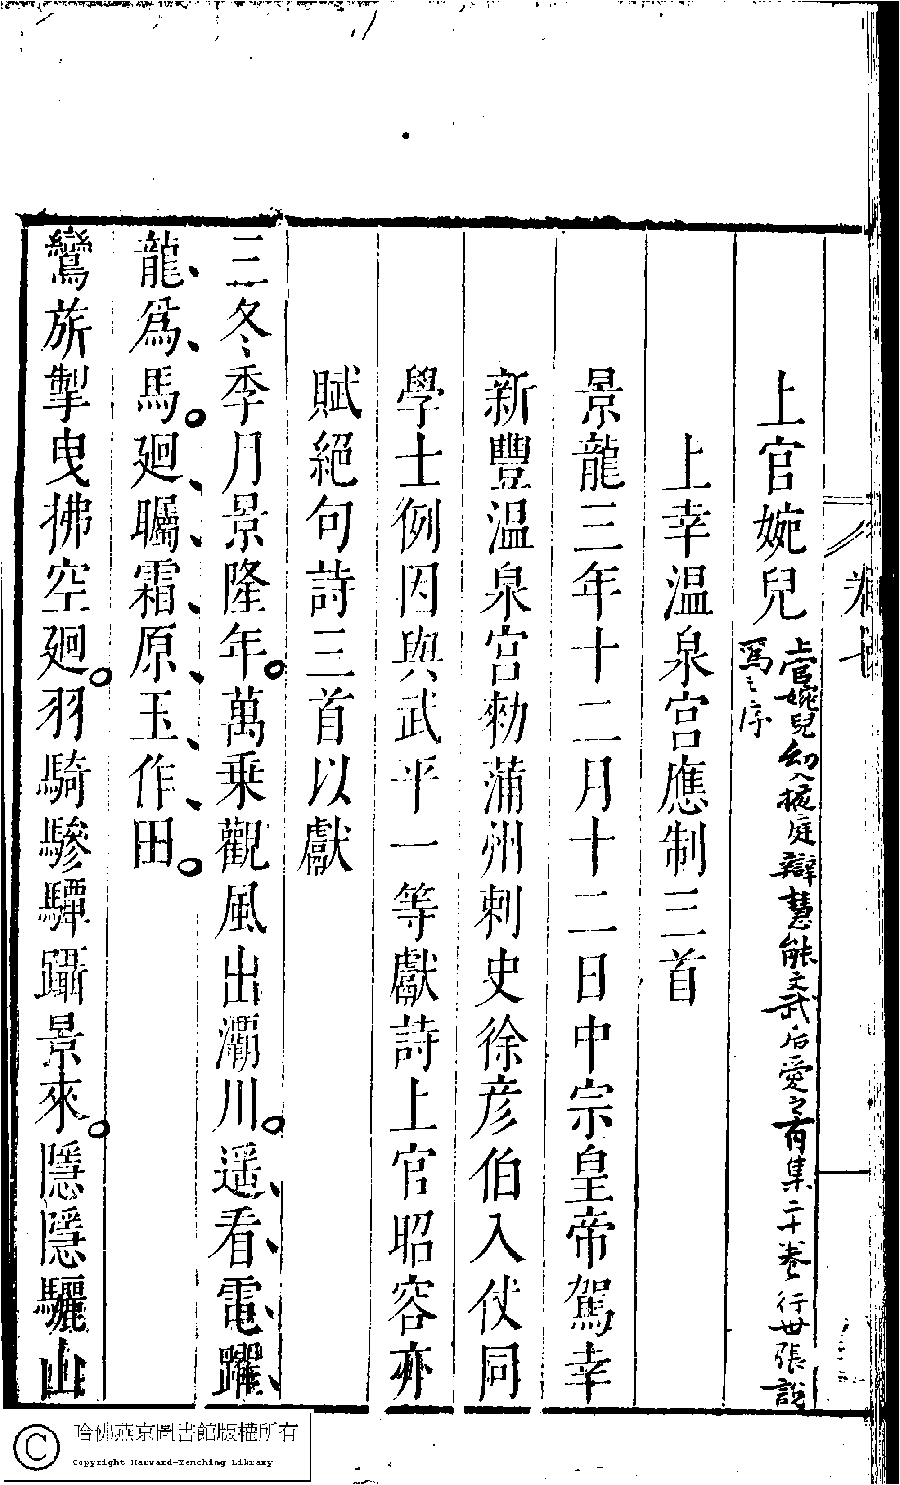 上官婉兒
上官婉兒幼入掖庭辯慧能文武后愛之有集二十卷行世張說
爲之序
上幸温泉宫應制三首
景龍三年十二月十二日中宗皇帝駕幸
新豐温泉宫勑蒲州刺史徐彦伯入仗同
學士例因與武平一等獻詩上官昭容亦
賦絕句詩三首以獻
三冬季月景隆年。萬乗觀風出灞川。遥看電躍
龍爲馬。廻矚霜原玉作田。
鸞旂掣曳拂空廻。羽騎驂驔躡景來。隱隱驪山
哈佛燕京圖書館版權所有
Copyright Harvard-Yenching Library